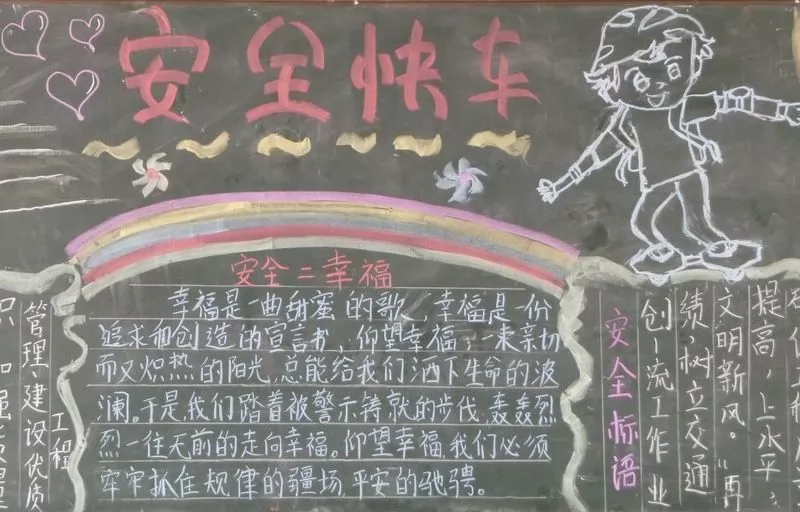 安全快车
安全=幸福
幸福是一曲甜蜜的歌，幸福是一份
追求和创造的宣言书，仰望幸福，一束亲切
而又炽热的阳光，总能给我们洒下生命的波
澜。于是我们踏着被警示铸就的步伐，轰轰烈
烈一往无前的走向幸福。仰望幸福，我们必须
牢牢抓住规律的疆场，平安的驰骋。
管理，建设优质
工程
安全标语
提高，上水平；
文明新风。“再
绩，树立交通
创一流工作业